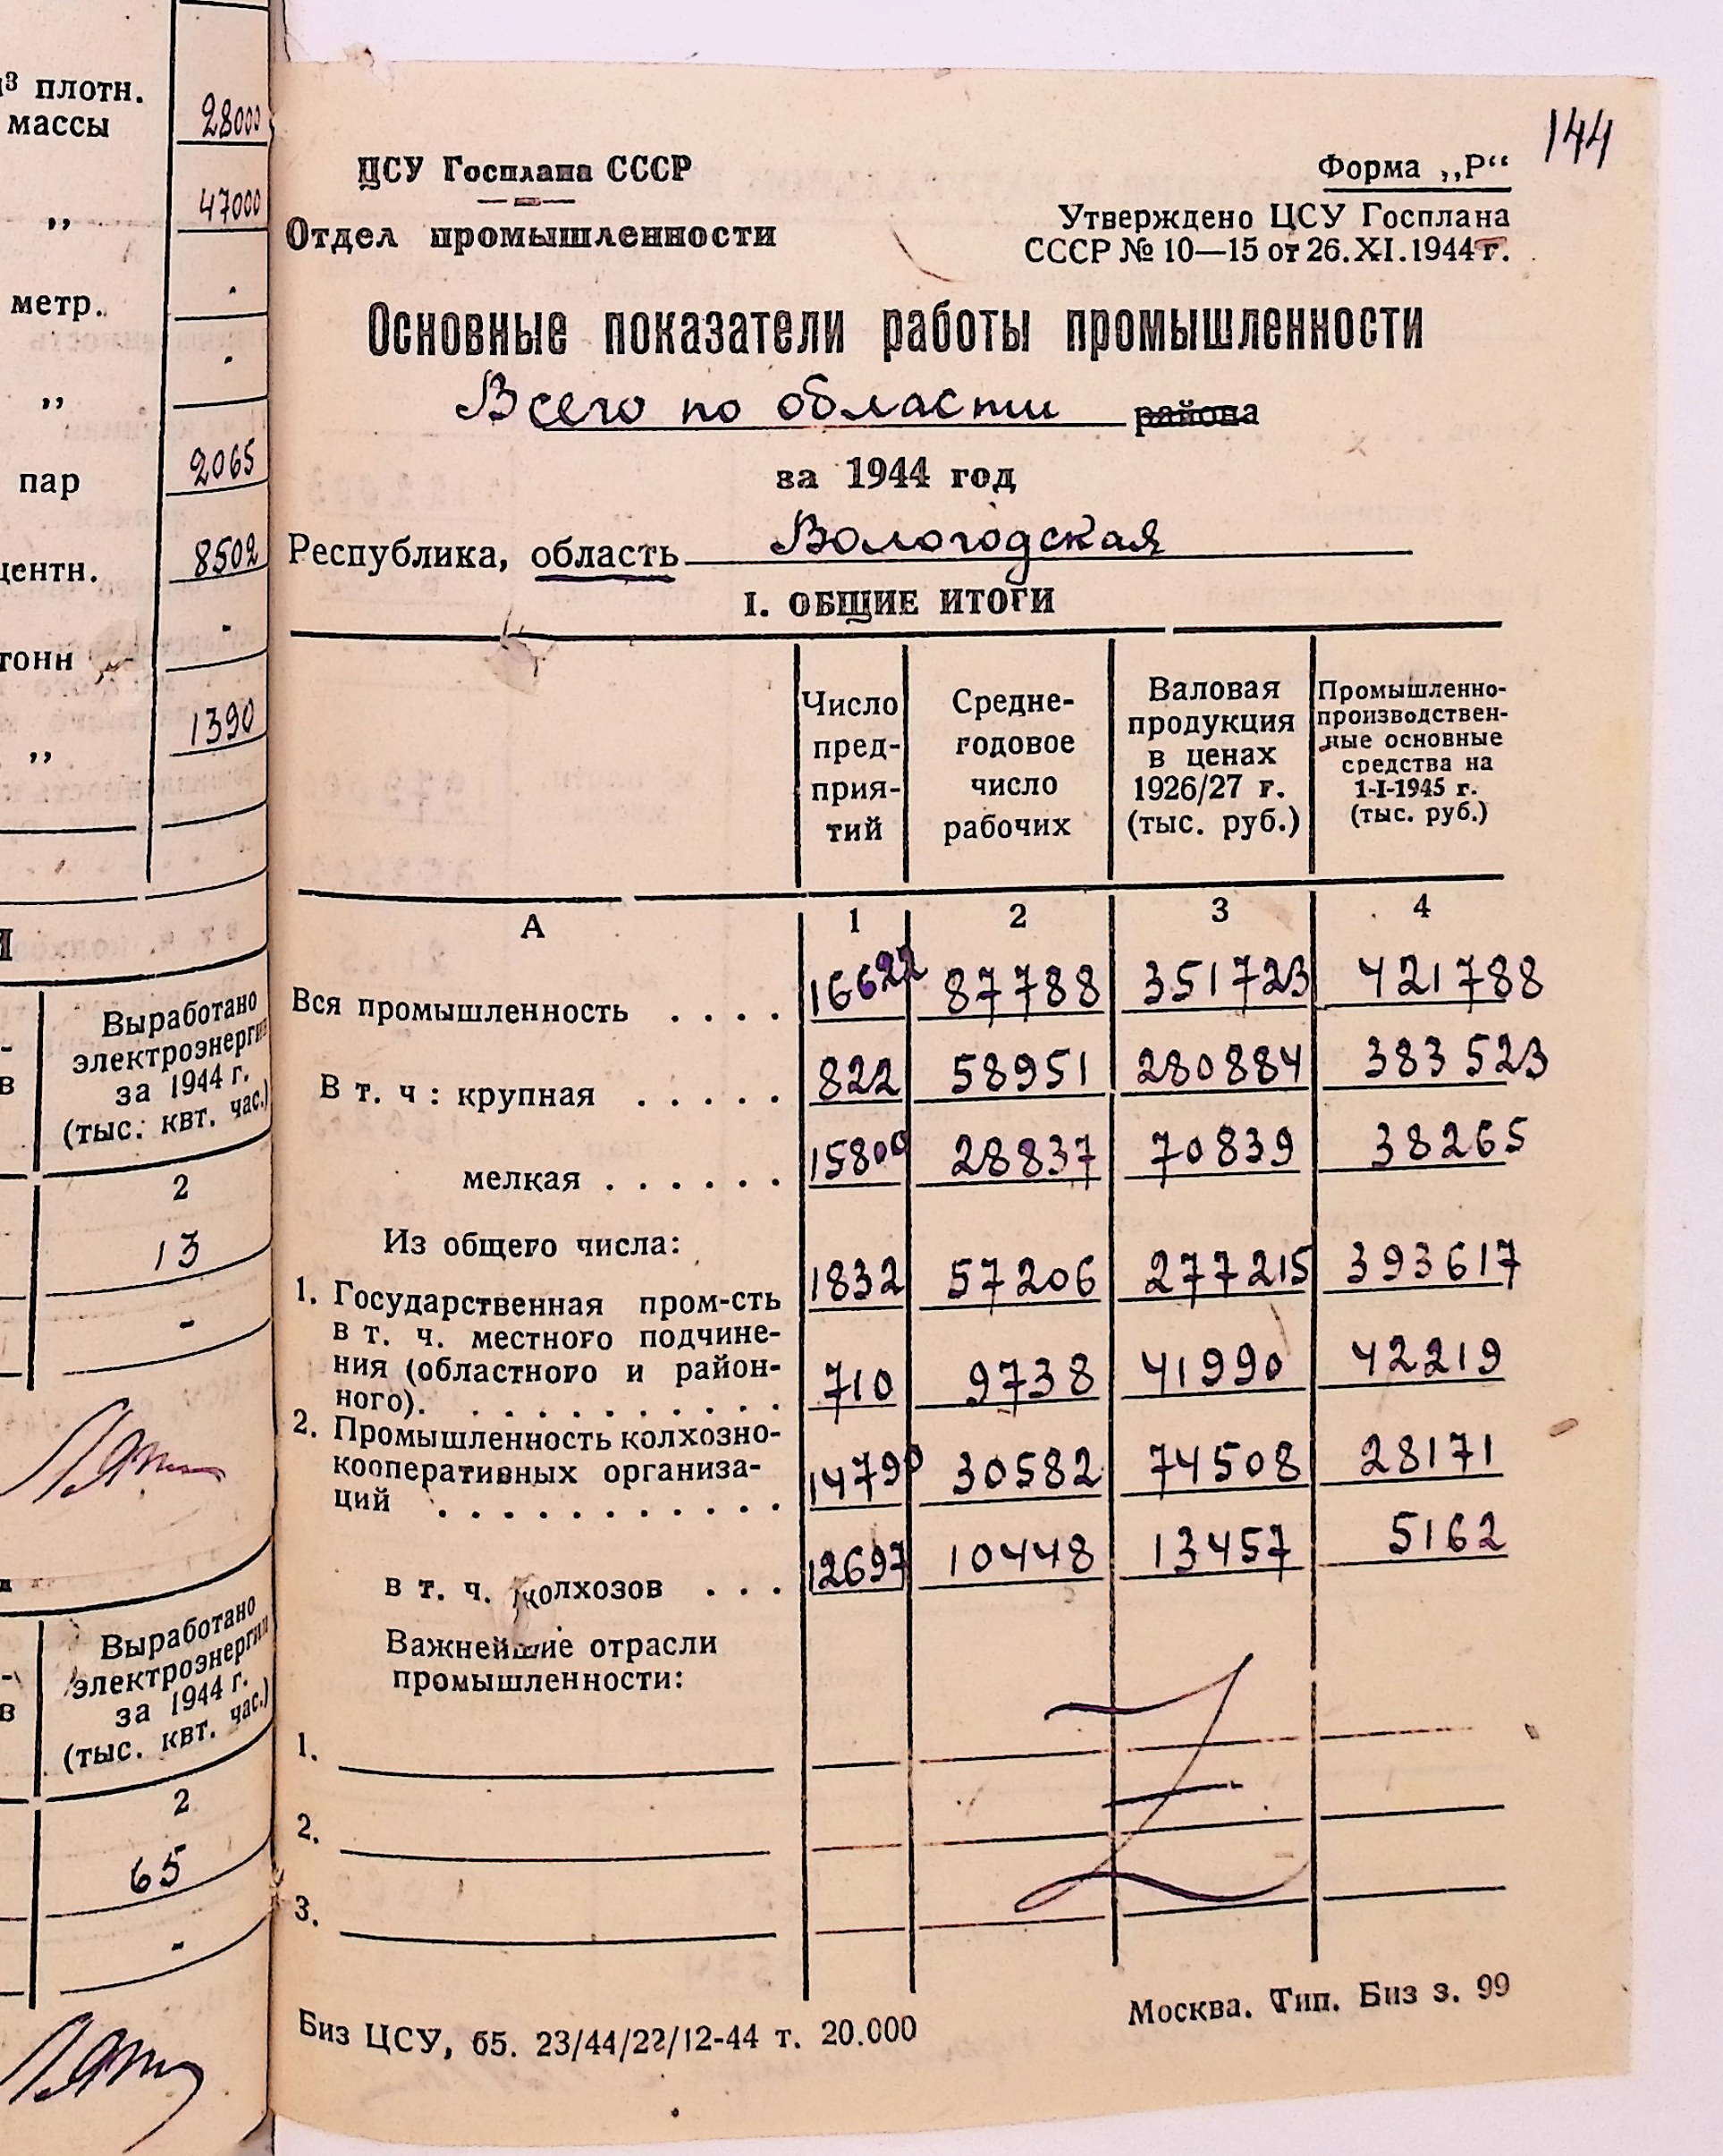 м³ плотн.
массы 28000
„ 47000
метр. -
„ -
пар 2065
центн. 8502
тонн -
„ 1390
Выработано
электроэнергии
за 1944 г.
(тыс. квт. час.)
2
13
-
Выработано
электроэнергии
за 1944 г.
(тыс. квт. час.)
2
65
-
144
ЦСУ Госплана СССР
Отдел промышленности
Форма „Р“
Утверждено ЦСУ Госплана
СССР № 10—15 от 26.XI.1944 г.
Основные показатели работы промышленности
Всего по области района
за 1944 год
Республика, область Вологодская
I. ОБЩИЕ ИТОГИ
Число
пред-
прия-
тий
Средне-
годовое
число
рабочих
Валовая
продукция
в ценах
1926/27 г.
(тыс. руб.)
Промышленно-
производствен-
ные основные
средства на
1-I-1945 г.
(тыс. руб.)
А 1 2 3 4
Вся промышленность . . . . 16622 87788 351723 421788
В т. ч : крупная . . . . . 822 58951 280884 383523
мелкая . . . . . . 15800 28837 70839 38265
Из общего числа:
1. Государственная пром-сть 1832 57206 277215 393617
в т. ч. местного подчине-
ния (областного и район-
ного). . . . . . . . . . . . 710 9738 41990 42219
2. Промышленность колхозно-
кооперативных организа-
ций . . . . . . . . . . . 14790 30582 74508 28171
в т. ч. колхозов . . . 12697 10448 13457 5162
Важнейшие отрасли
промышленности:
1.
2.
3.
Биз ЦСУ, 65. 23/44/22/12-44 т. 20.000
Москва. Тип. Биз з. 99